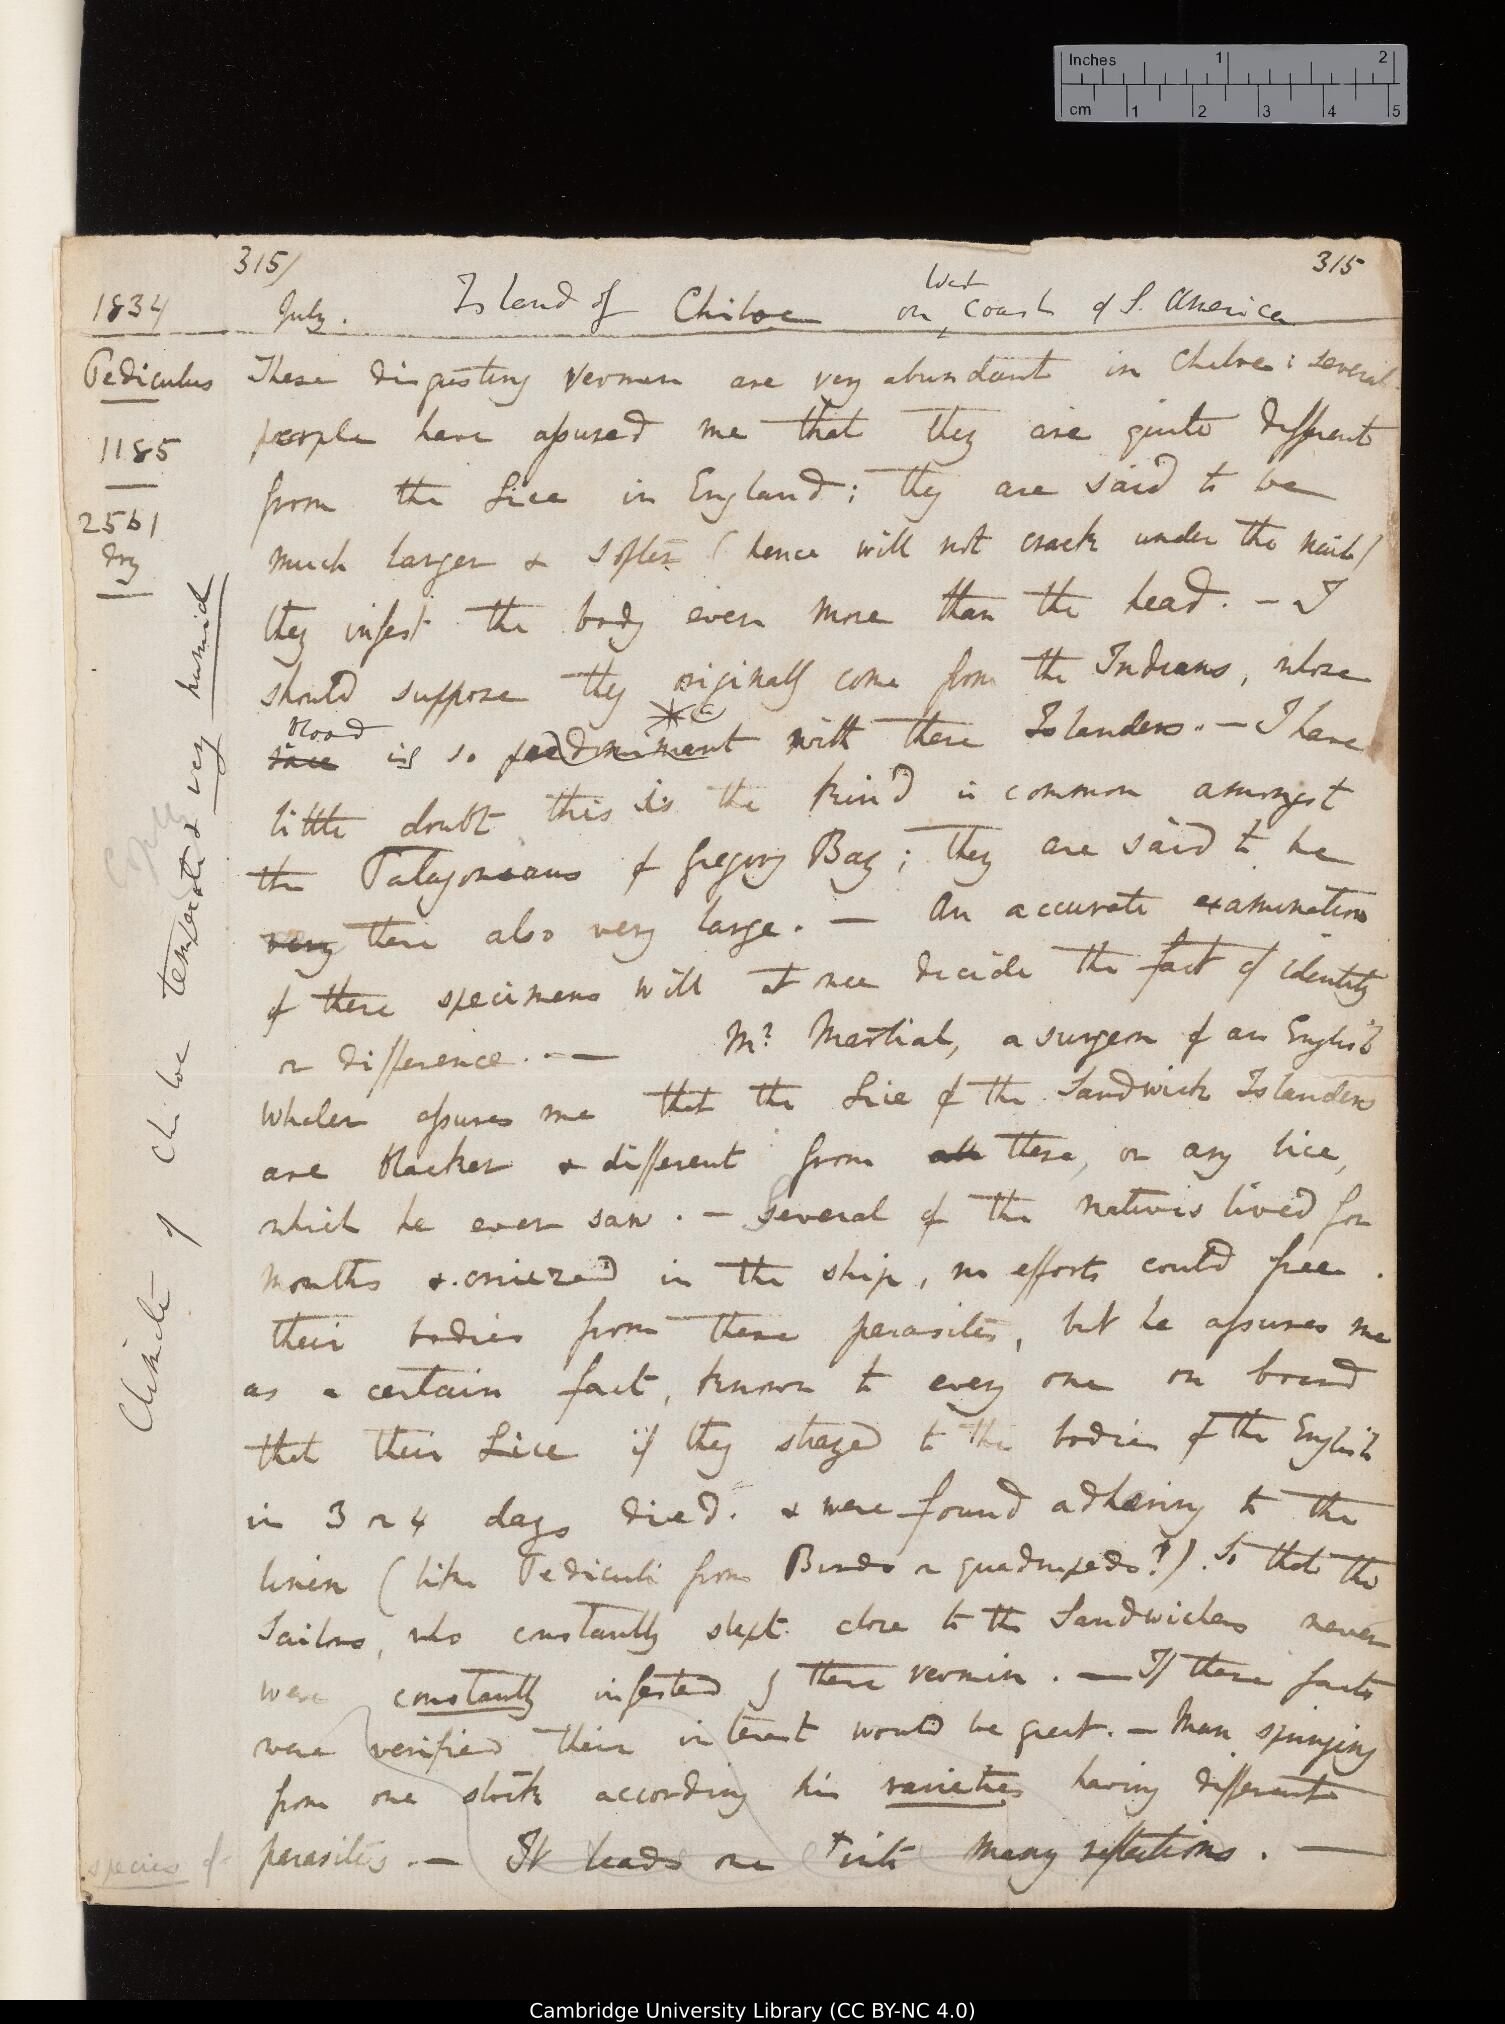 Inches 1 2
cm 1 2 3 4 5
315/ 315
West
1834 July. Island of Chiloe on ^ Coast of S. America
Pediculus These disgusting vermin are very abundant in Chiloe: several
1185 people have assured me that they are quite different
from the Lice in England; they are said to be
2561 much larger & softer (hence will not crack under the nail)
dry they infest the body even more than the head. — I
should suppose they originally come from the Indians, whose
blood
race is so predominant with these Islanders. — I have
little doubt this is the kind is common amongst
the Patagonians of Gregory Bay; They are said to be
very there also very large. — An accurate examination
of these specimens will at once decide the fact of identity
or difference. — Mr Martial, a surgeon of an English
Whaler assures me that the Lice of the Sandwich Islanders
are blacker & different from all these, or any lice,
which he ever saw. — Several of the natives lived for
months & cruized in the ship, no efforts could free
their bodies from these parasites, but he assures me
as a certain fact, known to every one on board
that their Lice if they strayed to the bodies of the English
in 3 or 4 days died. & were found adhering to the
linen (like Pediculi from Birds or quadrupeds?). So that the
Sailors, who constantly slept close to the Sandwichers never
were constantly infested by these vermin. — If these facts
were verified their interest would be great. — Man springing
from one stock according his varieties having different
species of parasites. — It leads one + into many reflections. —
Climate of Chiloe temperate & very humid
Cambridge University Library (CC BY-NC 4.0)